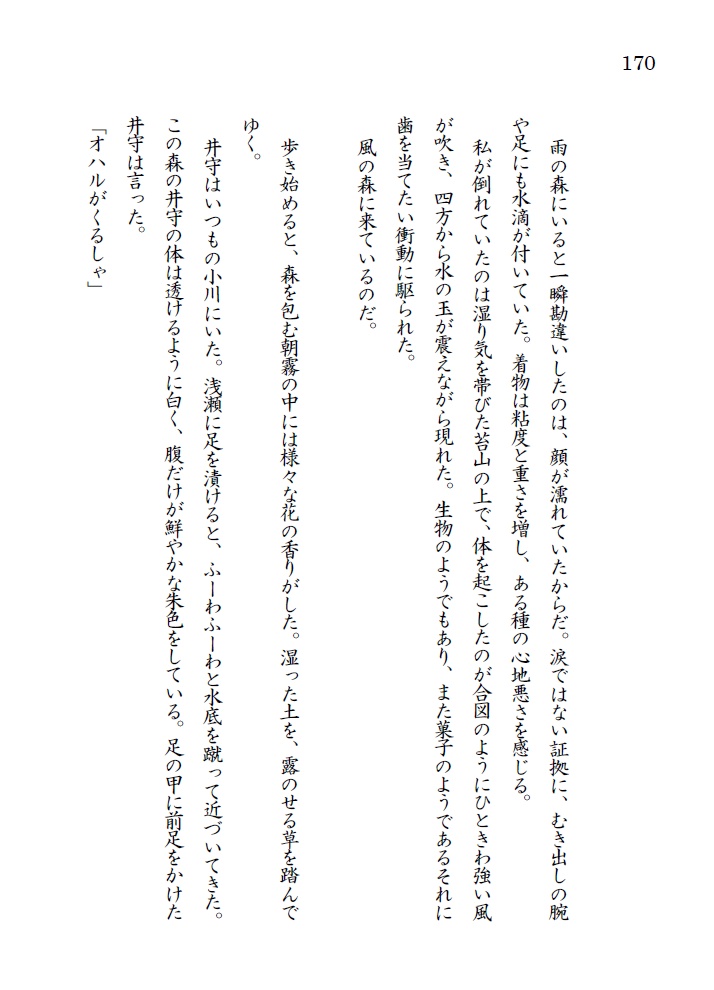 170
雨の森にいると一瞬勘違いしたのは、顔が濡れていたからだ。涙ではない証拠に、むき出しの腕
や足にも水滴が付いていた。着物は粘度と重さを増し、ある種の心地悪さを感じる。
私が倒れていたのは湿り気を帯びた苔山の上で、体を起こしたのが合図のようにひときわ強い風
が吹き、四方から水の玉が震えながら現れた。生物のようでもあり、また菓子のようであるそれに
歯を当てたい衝動に駆られた。
風の森に来ているのだ。
歩き始めると、森を包む朝霧の中には様々な花の香りがした。湿った土を、露のせる草を踏んで
ゆく。
井守はいつもの小川にいた。浅瀬に足を漬けると、ふーわふーわと水底を蹴って近づいてきた。
この森の井守の体は透けるように白く、腹だけが鮮やかな朱色をしている。足の甲に前足をかけた
井守は言った。
「オハルがくるしゃ」